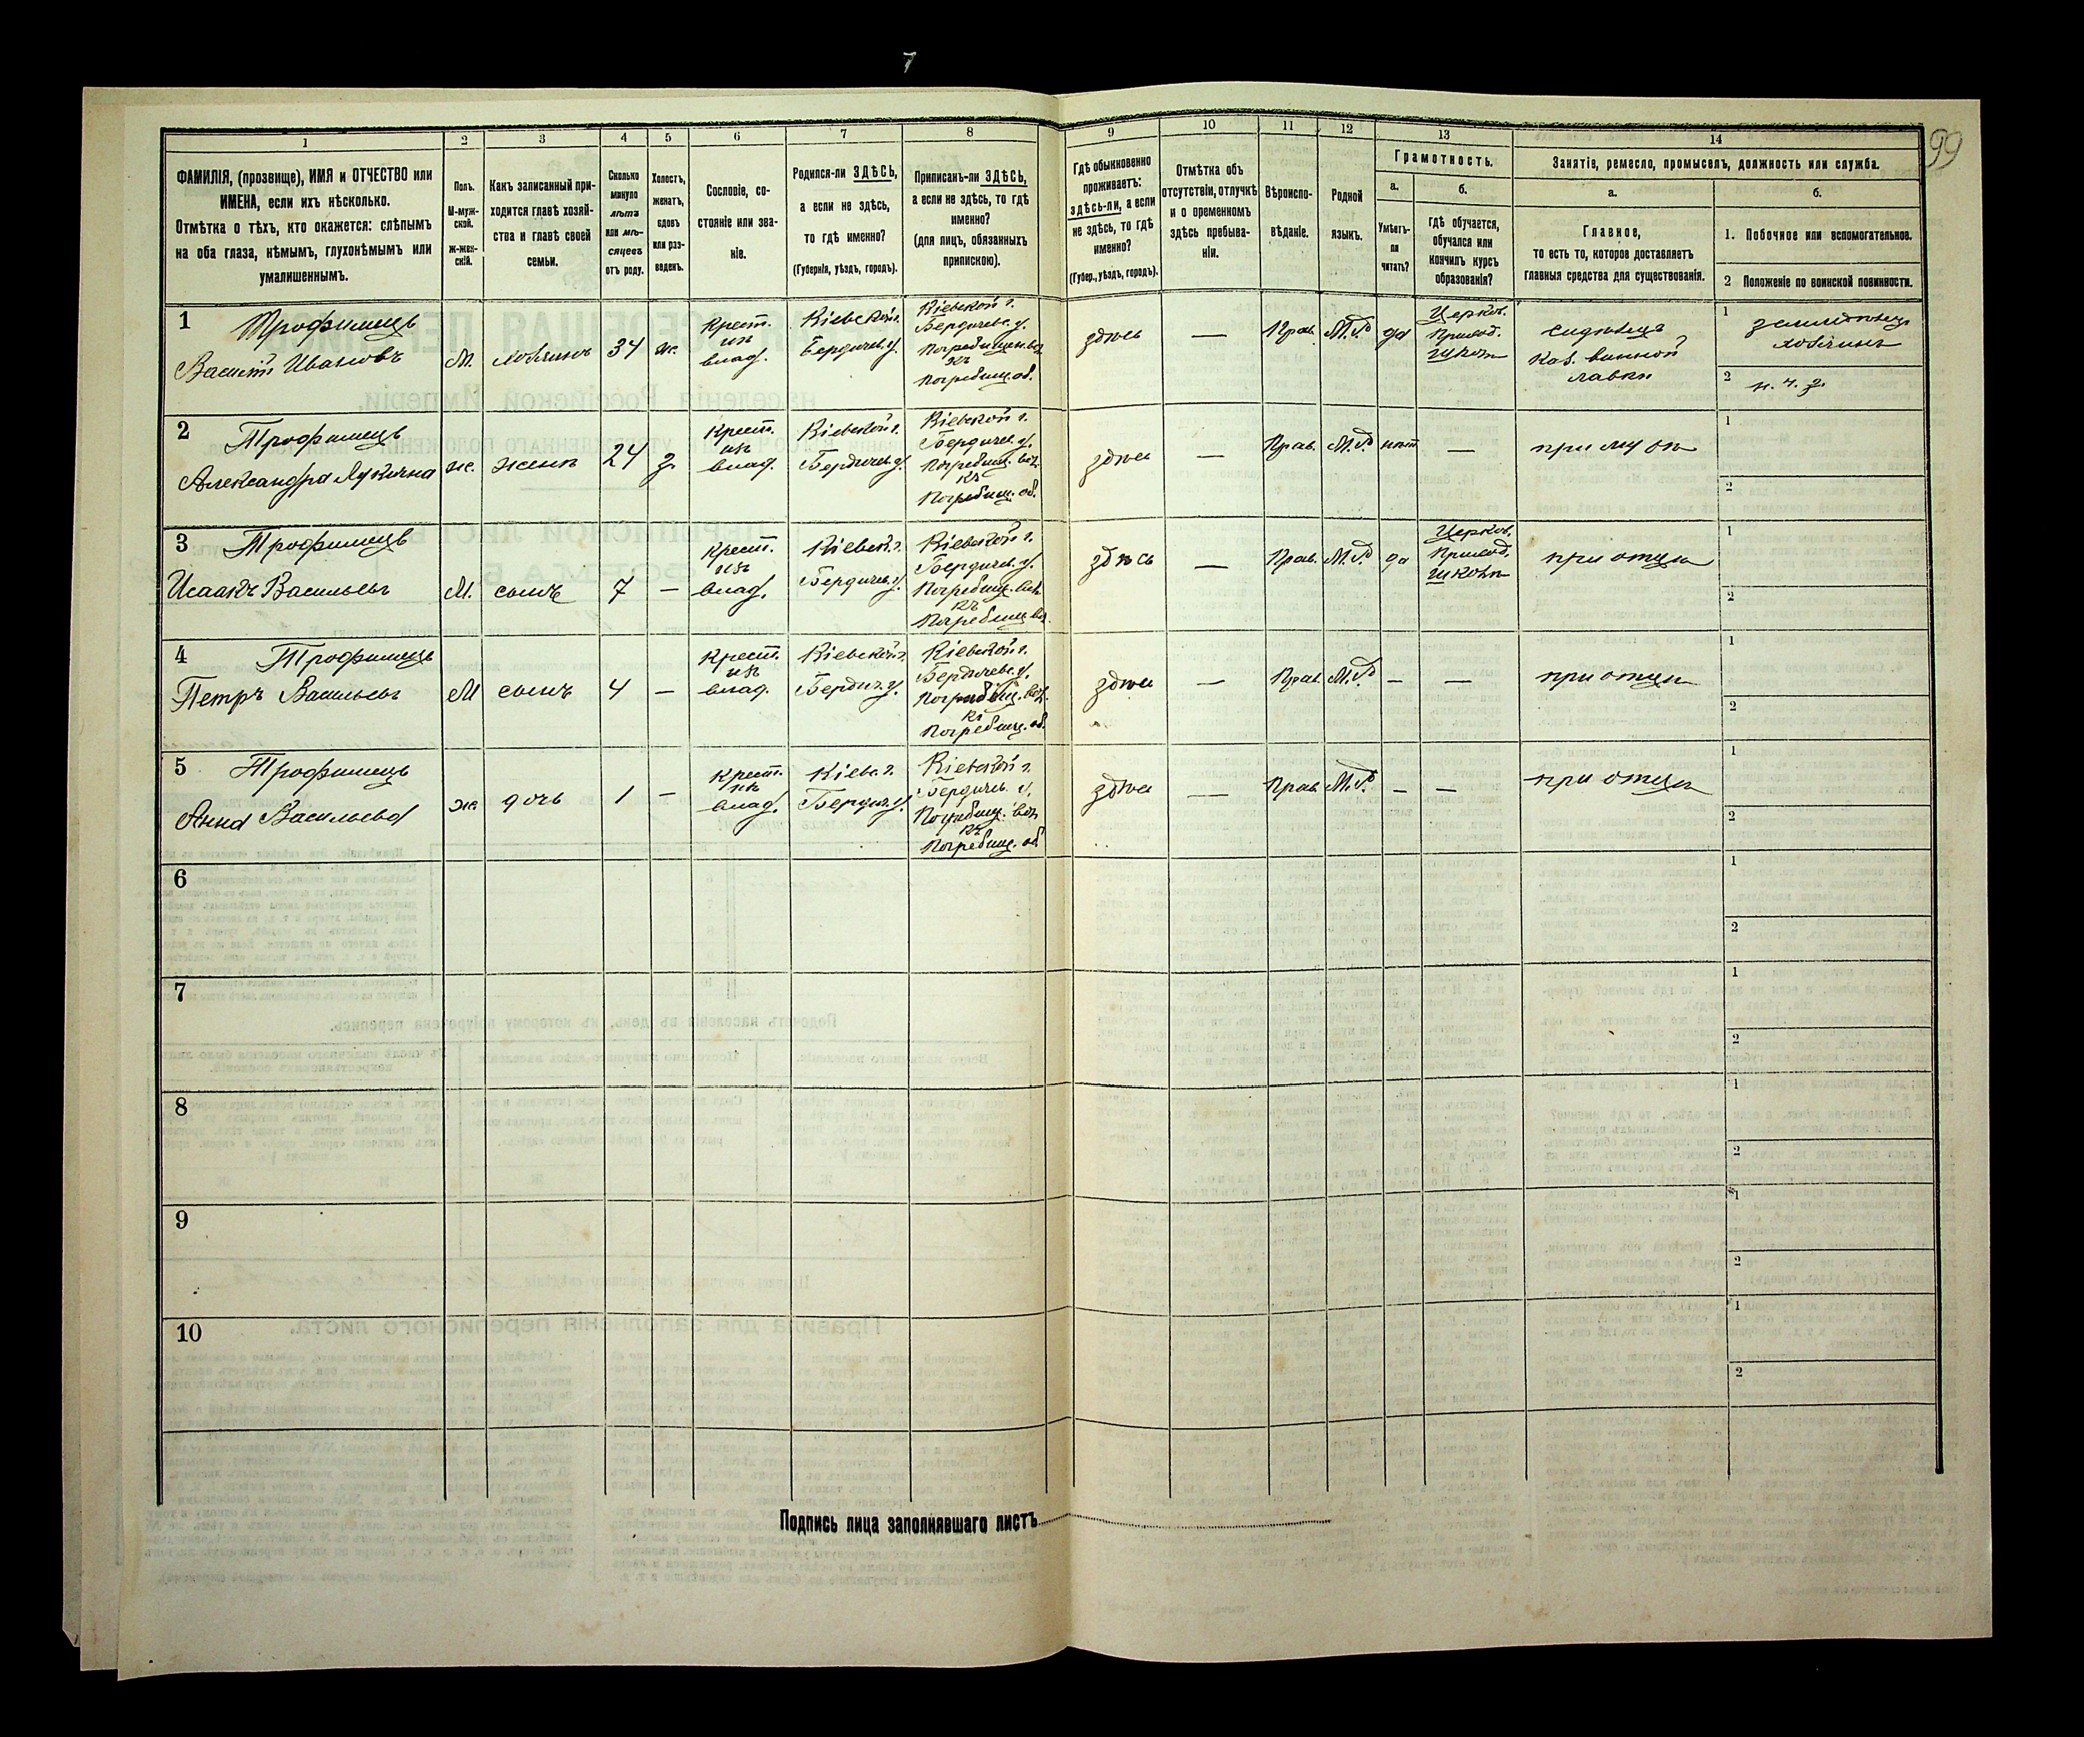 7
99
1
2
3
4
5
6
7
8
9
10
11
12
13
14
ФАМИЛІЯ, (прозвище), ИМЯ и ОТЧЕСТВО или
ИМЕНА, если ихъ нѣсколько.
Отмѣтка о тѣхъ, кто окажется: слѣпымъ
на оба глаза, нѣмымъ, глухонѣмымъ или
умалишеннымъ.
Полъ.
М-муж-
ской.
Ж-жен-
скій.
Какъ записанный при-
ходится главѣ хозяй-
ства и главѣ своей
семьи.
Сколько
минуло
лѣтъ
или мѣ-
сяцевъ
отъ роду.
Холостъ,
женатъ,
вдовъ
или раз-
веденъ.
Сословіе, со-
стояніе или зва-
ніе.
Родился-ли ЗДѢСЬ,
а если не здѣсь,
то гдѣ именно?
(Губернія, уѣздъ, городъ).
Приписанъ-ли ЗДѢСЬ,
а если не здѣсь, то гдѣ
именно?
(для лицъ, обязанныхъ
припискою).
Гдѣ обыкновенно
проживаетъ:
здѣсь-ли, а если
не здѣсь, то гдѣ
именно?
(Губер., уѣздъ, городъ).
Отмѣтка объ
отсутствіи, отлучкѣ
и о временномъ
здѣсь пребыва-
ніи.
Вѣроиспо-
вѣданіе.
Родной
языкъ.
Грамотность.
а.
б.
Умѣетъ-
ли
читать?
Гдѣ обучается,
обучался или
кончилъ курсъ
образованія?
Занятіе, ремесло, промыселъ, должность или служба.
а.
б.
Главное,
то есть то, которое доставляетъ
главныя средства для существованія.
1. Побочное или вспомогательное.
2 Положеніе по воинской повинности.
1
Трофимецъ
Василій Ивановъ
М.
хозяинъ
34
ж.
Крест.
изъ
влад.
Кіевской г.
Бердичев. у.
Кіевской г.
Бердичевс. у.
Погребищен. вол.
къ
Погребищ. об.
здѣсь
—
Прав.
М.Р.
да
Церков.
Приход.
школѣ
сидѣлецъ
каз. винной
лавки
1
земледѣлец
хозяинъ
2
н. ч. з.
2
Трофимецъ
Александра Лукична
ж.
жена
24
з.
Крест.
изъ
влад.
Кіевской г.
Бердичев. у.
Кіевской г.
Бердичев. у.
Погребищ. вол.
къ
Погребищ. об.
здѣсь
—
Прав.
М.Р.
нѣт
—
при мужѣ
1
2
3
Трофимецъ
Исаакъ Васильевъ
М.
сынъ
7
—
Крест.
изъ
влад.
Кіевск. г.
Бердичев. у.
Кіевской г.
Бердичев. у.
Погребищ. вол.
къ
Погребищ во.
здѣсь
—
Прав.
М.Р.
да
Церков.
Приход.
школѣ
при отцѣ
1
2
4
Трофимецъ
Петръ Васильевъ
М
сынъ
4
—
Крест.
изъ
влад.
Кіевской г.
Бердич. у.
Кіевской г.
Бердичевс. у.
Погребищ. вол.
къ
Погребищ. об.
здѣсь
—
Прав.
М.Р.
—
—
при отцѣ
1
2
5
Трофимецъ
Анна Васильева
ж
дочь
1
—
Крест.
изъ
влад.
Кіевс. г.
Бердич. у.
Кіевской г.
Бердичев. у.
Погребищ. вол.
къ
Погребищ. об.
здѣсь
—
Прав.
М.Р.
—
—
при отцѣ
1
2
6
1
2
7
1
2
8
1
2
9
1
2
10
1
2
Подпись лица заполнявшаго листъ